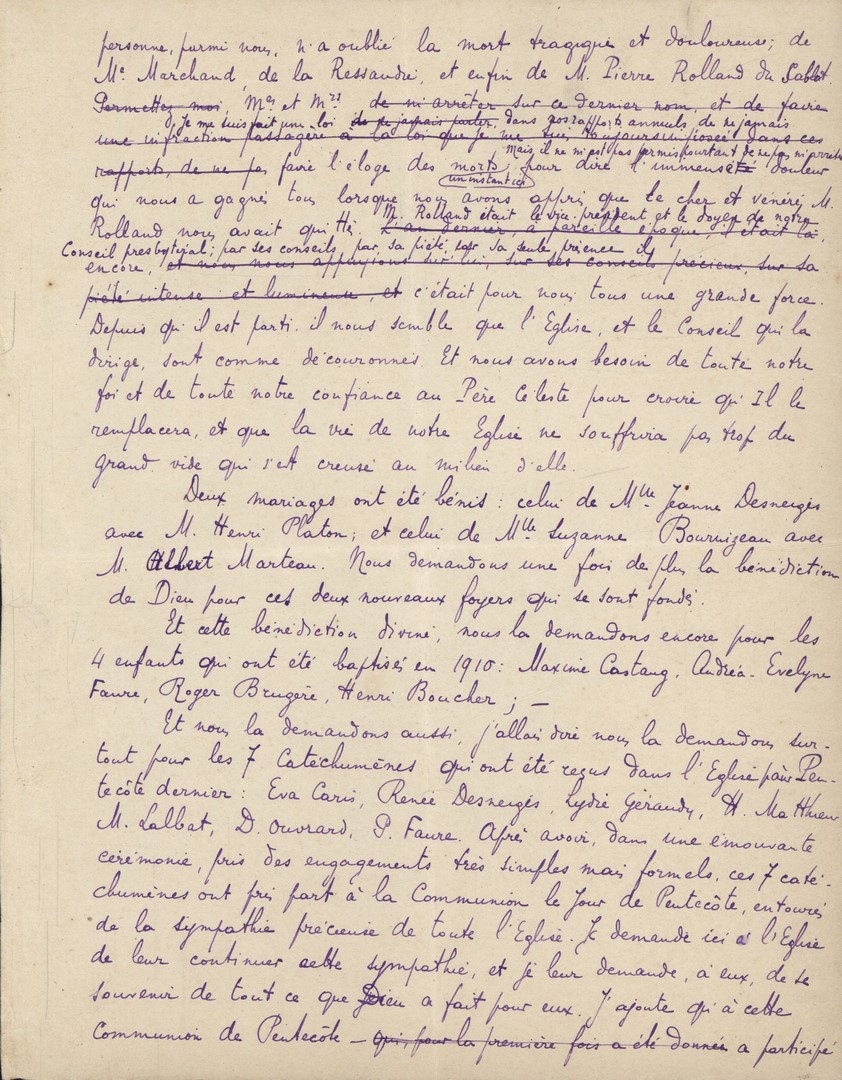 personne, parmi nous, n'a oublié la mort tragique et douloureuse; de
Me Marchand, de la Ressaudie, et enfin de M. Pierre Rolland du Sablot.
Permettez moi, Mes et Mrs de m'arrêter sur ce dernier nom, et de faire
Si je me suis fait une loi de ne jamais parler dans nos rapports annuels de ne jamais
une infraction passagère à la loi que je me suis toujours imposée dans ces
Mais, il ne m'est pas permis pourtant de ne pas m'arrêter
rapports, de ne pas faire l'éloge des morts, pour dire l'immense douleur
un instant ici
qui nous a gagnés tous lorsque nous avons appris que le cher et vénéré M.
M. Rolland était le vice-président et le doyen de notre
Rolland nous avait quittés. L'an dernier, à pareille époque, il était là,
Conseil presbytéral; par ses conseils, par sa piété, par sa seule présence il
encore, et nous nous appuyions sur lui, sur ses conseils précieux, sur sa
piété intense et lumineuse, et c'était pour nous tous une grande force.
Depuis qu'il est parti. il nous semble que l'Eglise, et le Conseil qui la
dirige, sont comme découronnés. Et nous avons besoin de toute notre
foi et de toute notre confiance au Père Céleste pour croire qu'Il le
remplacera, et que la vie de notre Eglise ne souffrira pas trop du
grand vide qui s'est creusé au milieu d'elle.
Deux mariages ont été bénis : celui de Mlle Jeanne Desneiges
avec M. Henri Platon; et celui de Mlle Suzanne Bournizeau avec
M. Albert Marteau. Nous demandons une fois de plus la bénédiction
de Dieu pour ces deux nouveaux foyers qui se sont fondés.
Et cette bénédiction divine, nous la demandons encore pour les
4 enfants qui ont été baptisés en 1910: Maxime Castang, Andréa-Evelyne
Faure, Roger Brugère, Henri Boucher ; —
Et nous la demandons aussi, j'allais dire nous la demandons sur-
tout pour les 7 Catéchumènes qui ont été reçus dans l'Eglise à Pen-
tecôte dernier : Eva Caris, Renée Desneiges, Lydie Géraudy, H. Matthieu
M. Lalbat, D. Ouvrard, P. Faure. Après avoir, dans une émouvante
cérémonie, pris des engagements très simples mais formels, ces 7 caté-
chumènes ont pris part à la Communion le Jour de Pentecôte, entourés
de la sympathie précieuse de toute l'Eglise. Je demande ici à l'Eglise
de leur continuer cette sympathie, et je leur demande, à eux, de se
souvenir de tout ce que Dieu a fait pour eux. J'ajoute qu'à cette
Communion de Pentecôte — qui, pour la première fois a été donnée a participé